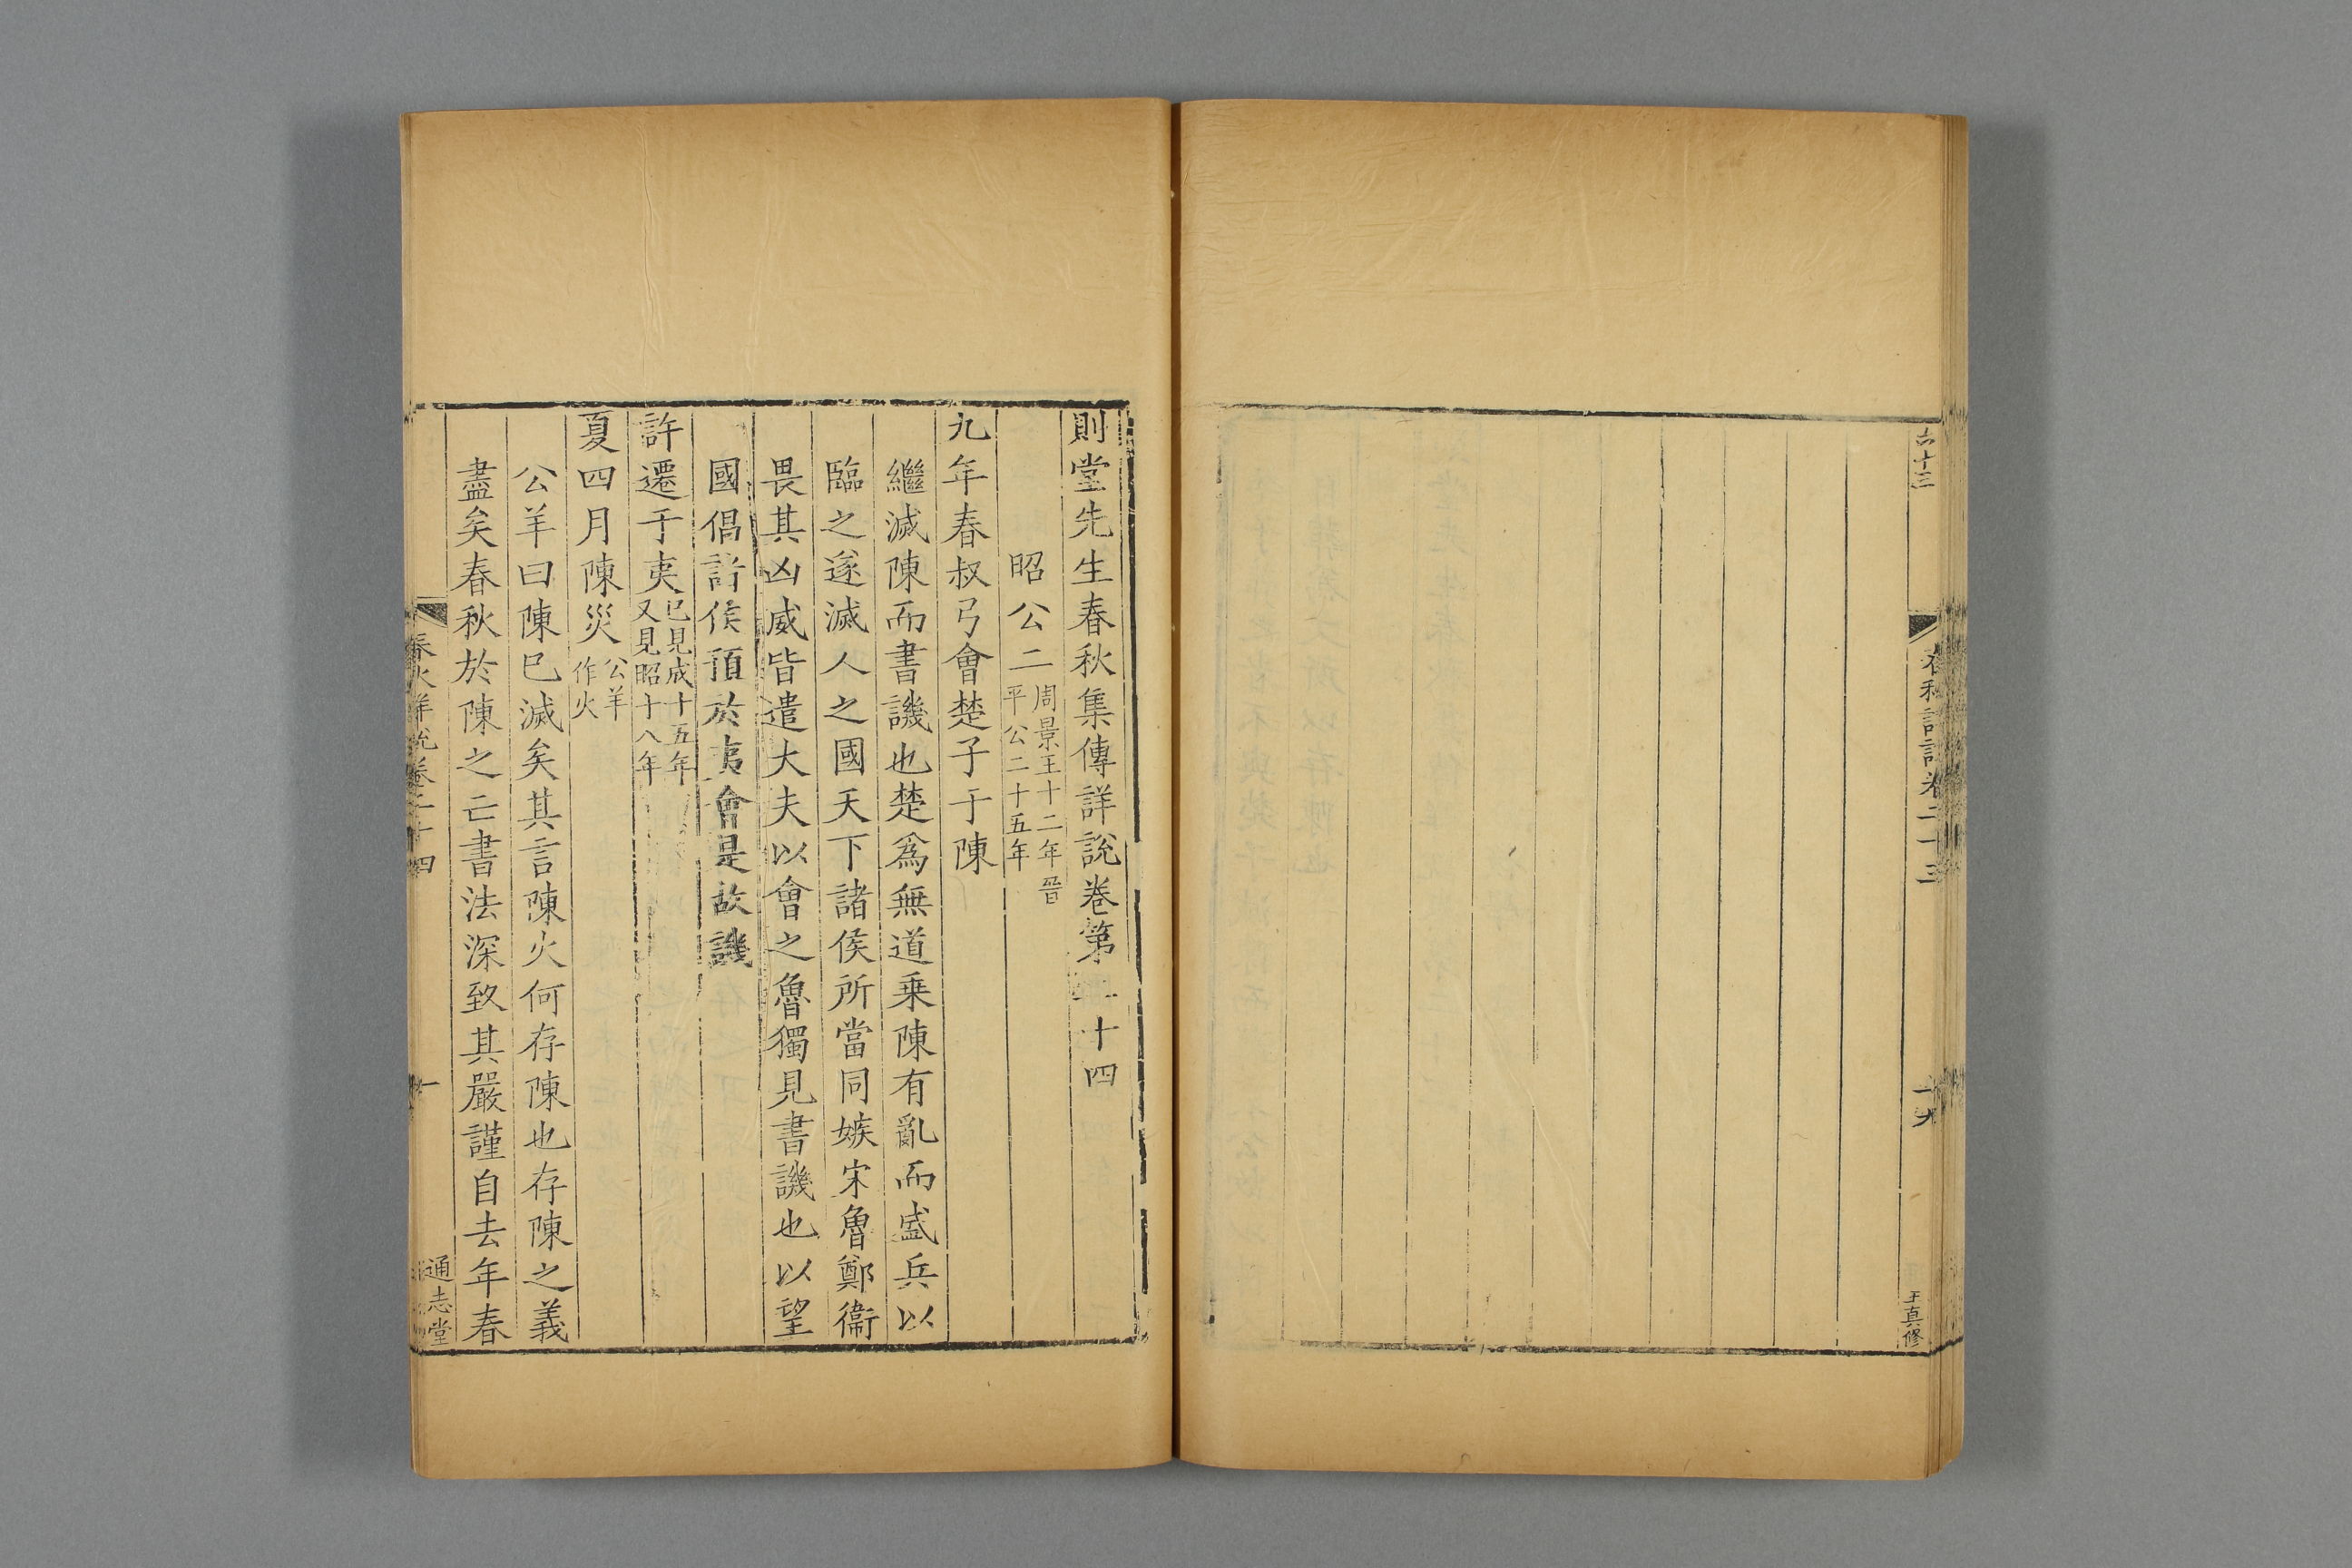 六十三
春秋詳説卷二十三
十九
王真修
則堂先生春秋集傳詳説卷第二十四
昭公二周景王十二年晉平公二十五年
九年春叔弓會楚子于陳
繼滅陳而書譏也楚爲無道乗陳有亂而盛兵以
臨之遂滅人之國天下諸侯所當同嫉宋魯鄭衞
畏其凶威皆遣大夫以會之魯獨見書譏也以望
國倡諸侯預於夷會是故譏
許遷于夷已見成十五年又見昭十八年
夏四月陳災公羊作火
公羊曰陳巳滅矣其言陳火何存陳也存陳之義
盡矣春秋於陳之亡書法深致其嚴謹自去年春
春秋詳説卷二十四
一
通志堂